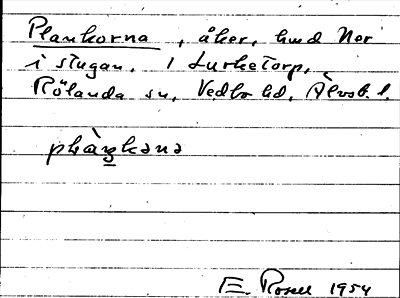 Plankorna, åker, hmd Nor
i stugan. 1 Lurketorp,
Rölanda sn, Vedbo hd, Älvsb. l.
plàŋkənə
E. Rosell 1954